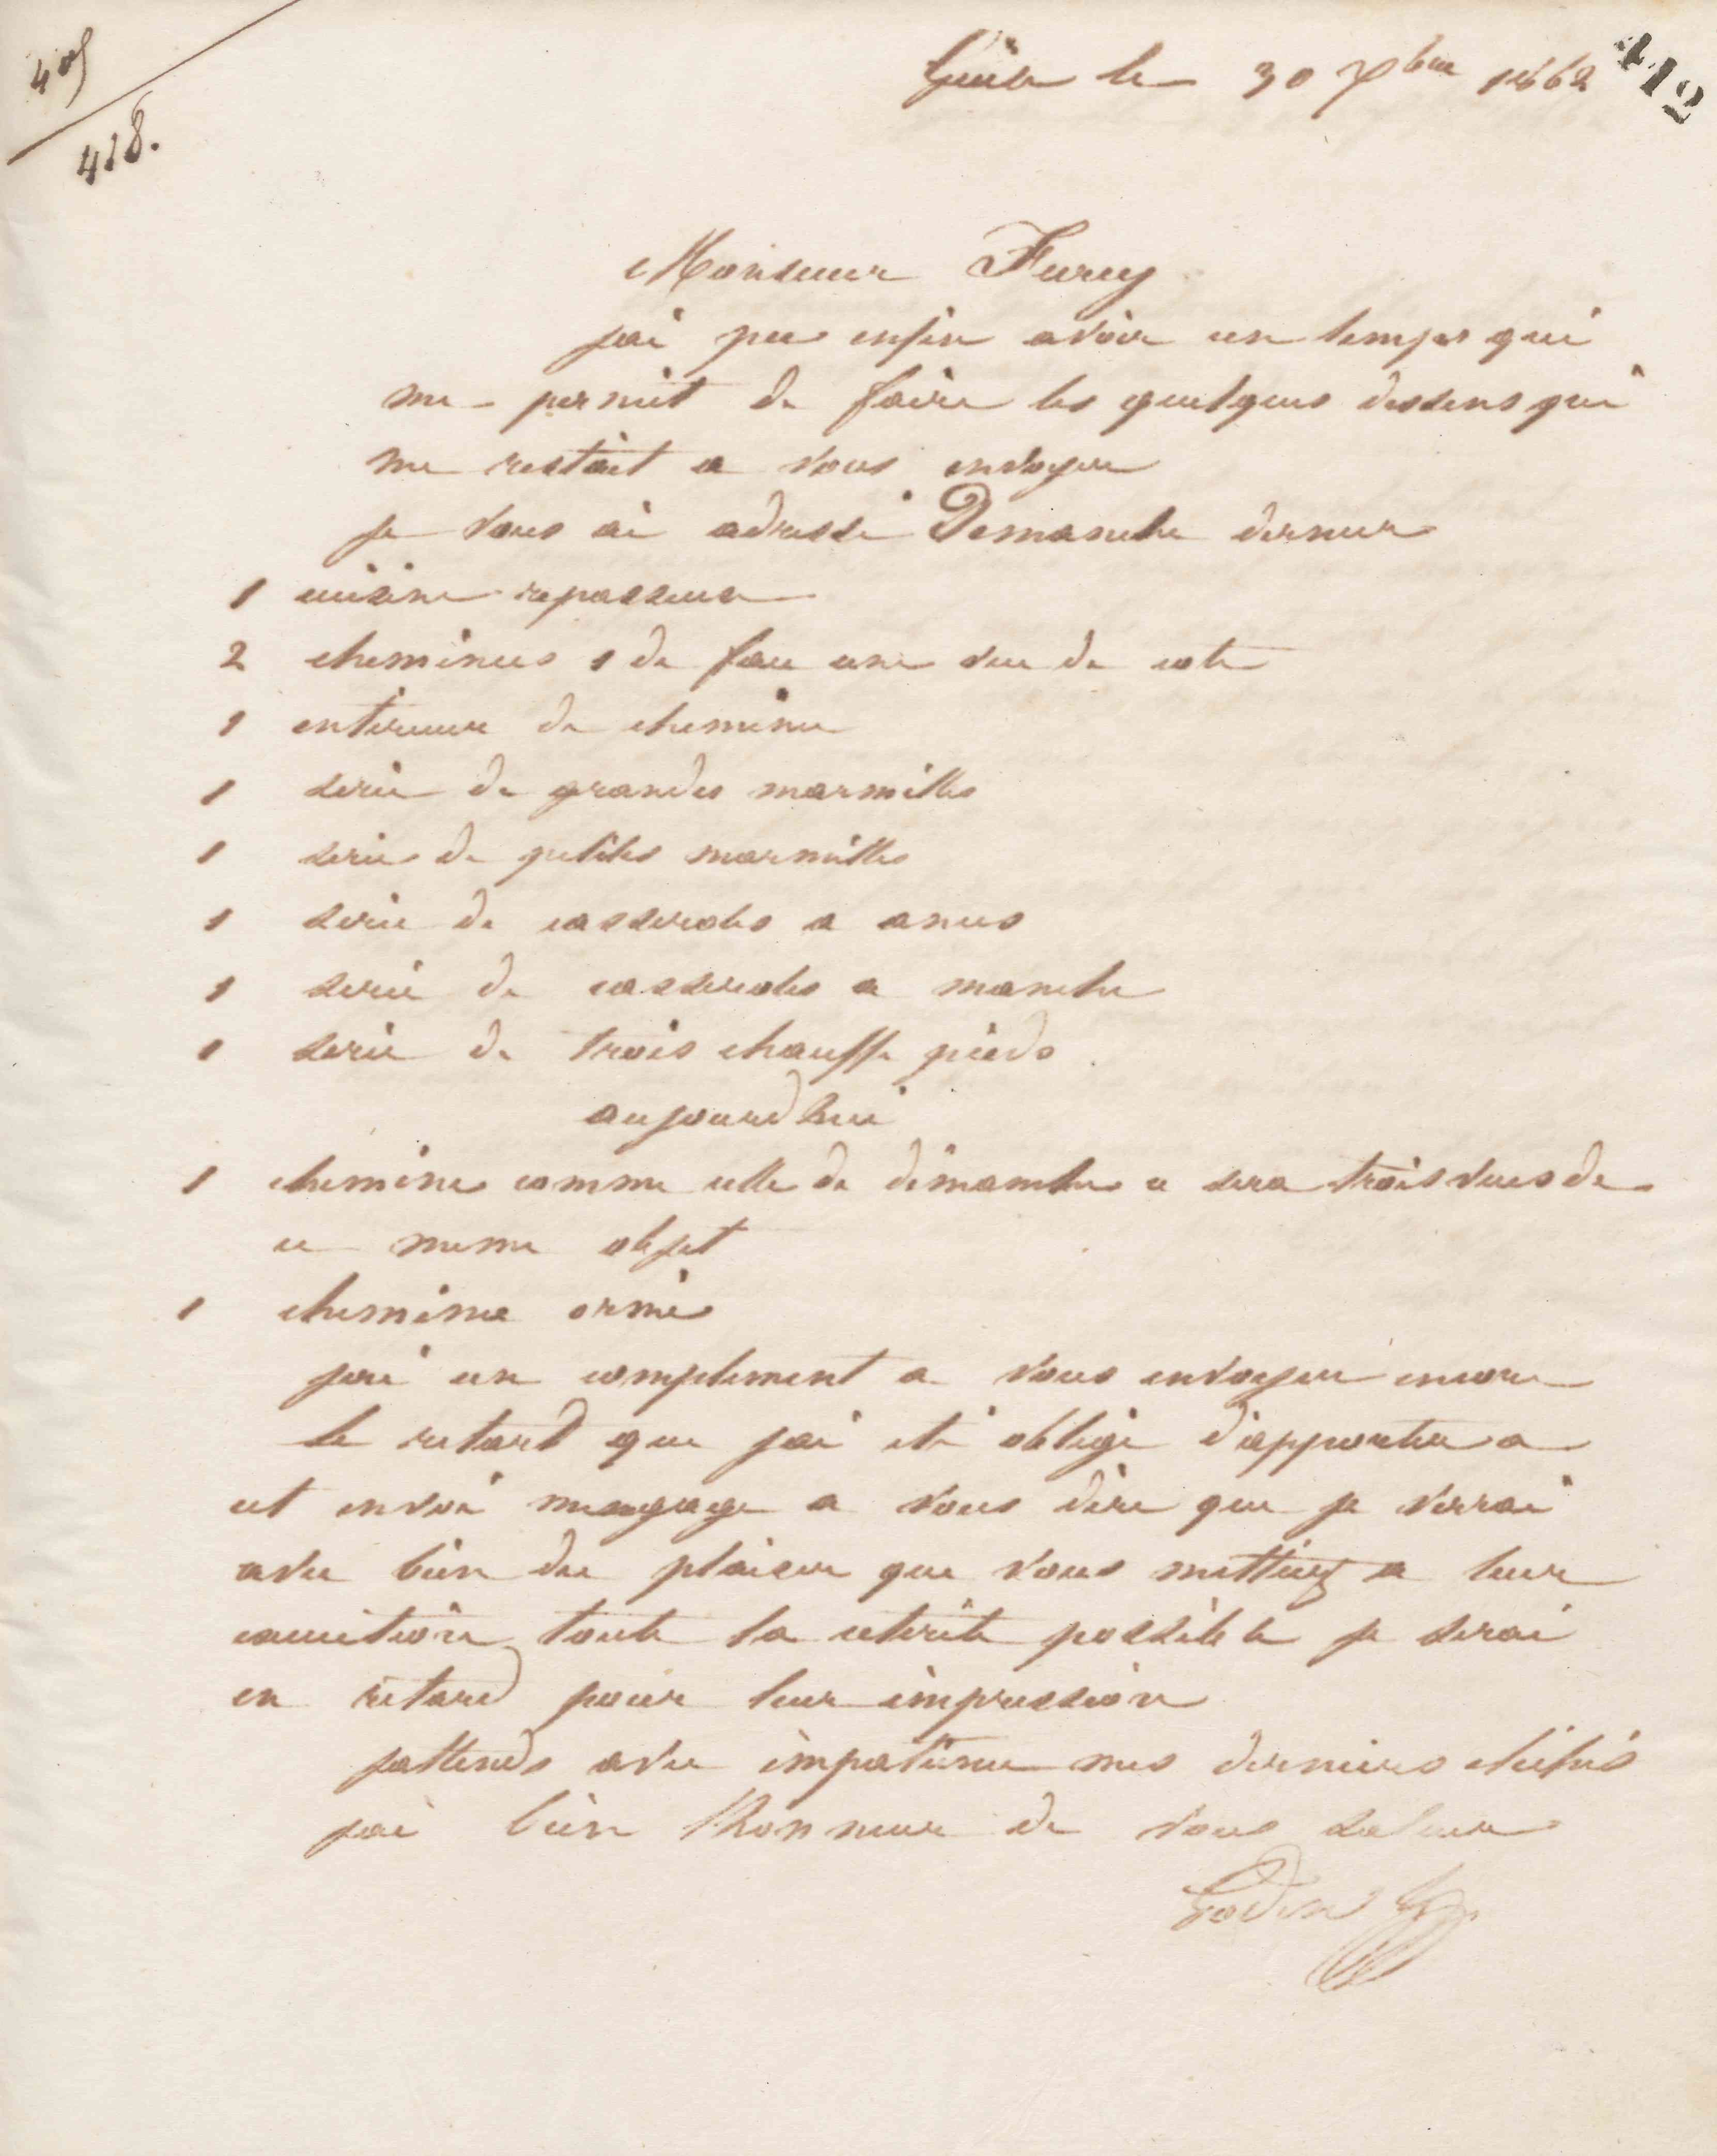 405
418.
412
Guise le 30 7bre 1862
Monsieur Furcy
jai pu enfin avoir un temps qui
me permit de faire les quelques dessins qui
me restait a vous envoyer
je vous ai adressé Dimanche dernier
1 cuisine repasseur
2 cheminees 1 de face une vue de coté
1 interieur de cheminee
1 serie de grandes marmittes
1 serie de petites marmittes
1 serie de casseroles a anses
1 serie de casseroles a manche
1 serie de trois chauffe pieds
aujourd'hui
1 cheminee comme celle de dimanche ce sera trois vues de
ce meme objet
1 cheminee ornée
jai un complement a vous envoyer encore
le retard que jai été obligé d'apporter a
cet envoi mengage a vous dire que je verrai
avec bien du plaisir que vous mettiez a leur
execution toute la celerité possible je serai
en retard pour leur impression
jattends avec impatience mes derniers clichés
jai bien lhonneur de vous saluer
Godin